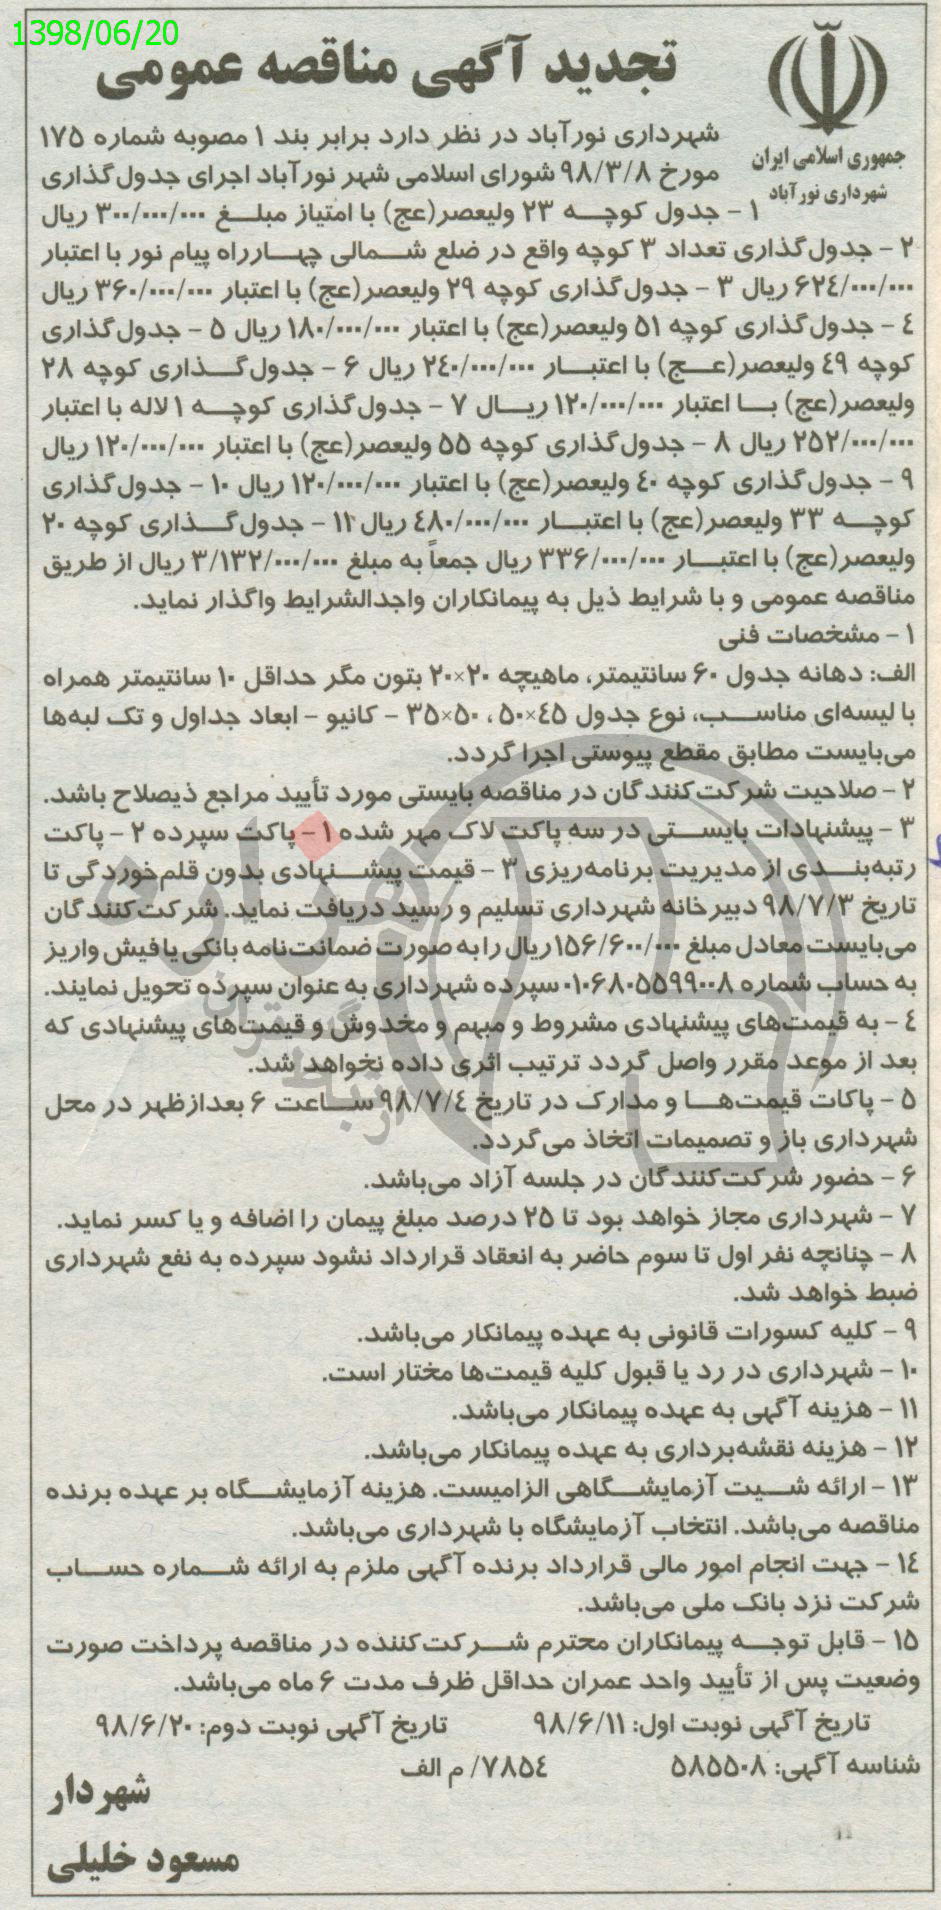 1398/06/20
تجدید آگهی مناقصه عمومی
جمهوری اسلامی ایران
شهرداری نورآباد
شهرداری نورآباد در نظر دارد برابر بند ۱ مصوبه شماره ۱۷۵
مورخ ۹۸/۳/۸ شورای اسلامی شهر نورآباد اجرای جدول‌گذاری
۱ - جدول کوچه ۲۳ ولیعصر(عج) با امتیاز مبلغ ۳۰۰/۰۰۰/۰۰۰ ریال
۲ - جدول‌گذاری تعداد ۳ کوچه واقع در ضلع شمالی چهارراه پیام نور با اعتبار
۶۲۴/۰۰۰/۰۰۰ ریال ۳ - جدول‌گذاری کوچه ۲۹ ولیعصر(عج) با اعتبار ۳۶۰/۰۰۰/۰۰۰ ریال
۴ - جدول‌گذاری کوچه ۵۱ ولیعصر(عج) با اعتبار ۱۸۰/۰۰۰/۰۰۰ ریال ۵ - جدول‌گذاری
کوچه ۴۹ ولیعصر(عج) با اعتبار ۲۴۰/۰۰۰/۰۰۰ ریال ۶ - جدول‌گذاری کوچه ۲۸
ولیعصر(عج) با اعتبار ۱۲۰/۰۰۰/۰۰۰ ریال ۷ - جدول‌گذاری کوچه ۱ لاله با اعتبار
۲۵۲/۰۰۰/۰۰۰ ریال ۸ - جدول‌گذاری کوچه ۵۵ ولیعصر(عج) با اعتبار ۱۲۰/۰۰۰/۰۰۰ ریال
۹ - جدول‌گذاری کوچه ۴۰ ولیعصر(عج) با اعتبار ۱۲۰/۰۰۰/۰۰۰ ریال ۱۰ - جدول‌گذاری
کوچه ۳۳ ولیعصر(عج) با اعتبار ۴۸۰/۰۰۰/۰۰۰ ریال ۱۱ - جدول‌گذاری کوچه ۲۰
ولیعصر(عج) با اعتبار ۳۳۶/۰۰۰/۰۰۰ ریال جمعاً به مبلغ ۳/۱۳۲/۰۰۰/۰۰۰ ریال از طریق
مناقصه عمومی و با شرایط ذیل به پیمانکاران واجدالشرایط واگذار نماید.
۱ - مشخصات فنی
الف: دهانه جدول ۶۰ سانتیمتر، ماهیچه ۲۰×۲۰ بتون مگر حداقل ۱۰ سانتیمتر همراه
با لیسه‌ای مناسب، نوع جدول ۴۵×۵۰، ۵۰×۳۵ - کانیو - ابعاد جداول و تک لبه‌ها
می‌بایست مطابق مقطع پیوستی اجرا گردد.
۲ - صلاحیت شرکت‌کنندگان در مناقصه بایستی مورد تأیید مراجع ذیصلاح باشد.
۳ - پیشنهادات بایستی در سه پاکت لاک مهر شده ۱ - پاکت سپرده ۲ - پاکت
رتبه‌بندی از مدیریت برنامه‌ریزی ۳ - قیمت پیشنهادی بدون قلم‌خوردگی تا
تاریخ ۹۸/۷/۳ دبیرخانه شهرداری تسلیم و رسید دریافت نماید. شرکت‌کنندگان
می‌بایست معادل مبلغ ۱۵۶/۶۰۰/۰۰۰ ریال را به صورت ضمانت‌نامه بانکی یا فیش واریز
به حساب شماره ۰۱۰۶۸۰۵۵۹۹۰۰۸ سپرده شهرداری به عنوان سپرده تحویل نمایند.
۴ - به قیمت‌های پیشنهادی مشروط و مبهم و مخدوش و قیمت‌های پیشنهادی که
بعد از موعد مقرر واصل گردد ترتیب اثری داده نخواهد شد.
۵ - پاکات قیمت‌ها و مدارک در تاریخ ۹۸/۷/۴ ساعت ۶ بعدازظهر در محل
شهرداری باز و تصمیمات اتخاذ می‌گردد.
۶ - حضور شرکت‌کنندگان در جلسه آزاد می‌باشد.
۷ - شهرداری مجاز خواهد بود تا ۲۵ درصد مبلغ پیمان را اضافه و یا کسر نماید.
۸ - چنانچه نفر اول تا سوم حاضر به انعقاد قرارداد نشود سپرده به نفع شهرداری
ضبط خواهد شد.
۹ - کلیه کسورات قانونی به عهده پیمانکار می‌باشد.
۱۰ - شهرداری در رد یا قبول کلیه قیمت‌ها مختار است.
۱۱ - هزینه آگهی به عهده پیمانکار می‌باشد.
۱۲ - هزینه نقشه‌برداری به عهده پیمانکار می‌باشد.
۱۳ - ارائه شیت آزمایشگاهی الزامیست. هزینه آزمایشگاه بر عهده برنده
مناقصه می‌باشد. انتخاب آزمایشگاه با شهرداری می‌باشد.
۱۴ - جهت انجام امور مالی قرارداد برنده آگهی ملزم به ارائه شماره حساب
شرکت نزد بانک ملی می‌باشد.
۱۵ - قابل توجه پیمانکاران محترم شرکت‌کننده در مناقصه پرداخت صورت
وضعیت پس از تأیید واحد عمران حداقل ظرف مدت ۶ ماه می‌باشد.
تاریخ آگهی نوبت اول: ۹۸/۶/۱۱ تاریخ آگهی نوبت دوم: ۹۸/۶/۲۰
شناسه آگهی: ۵۸۵۵۰۸ ۷۸۵۴/ م الف
شهردار
مسعود خلیلی